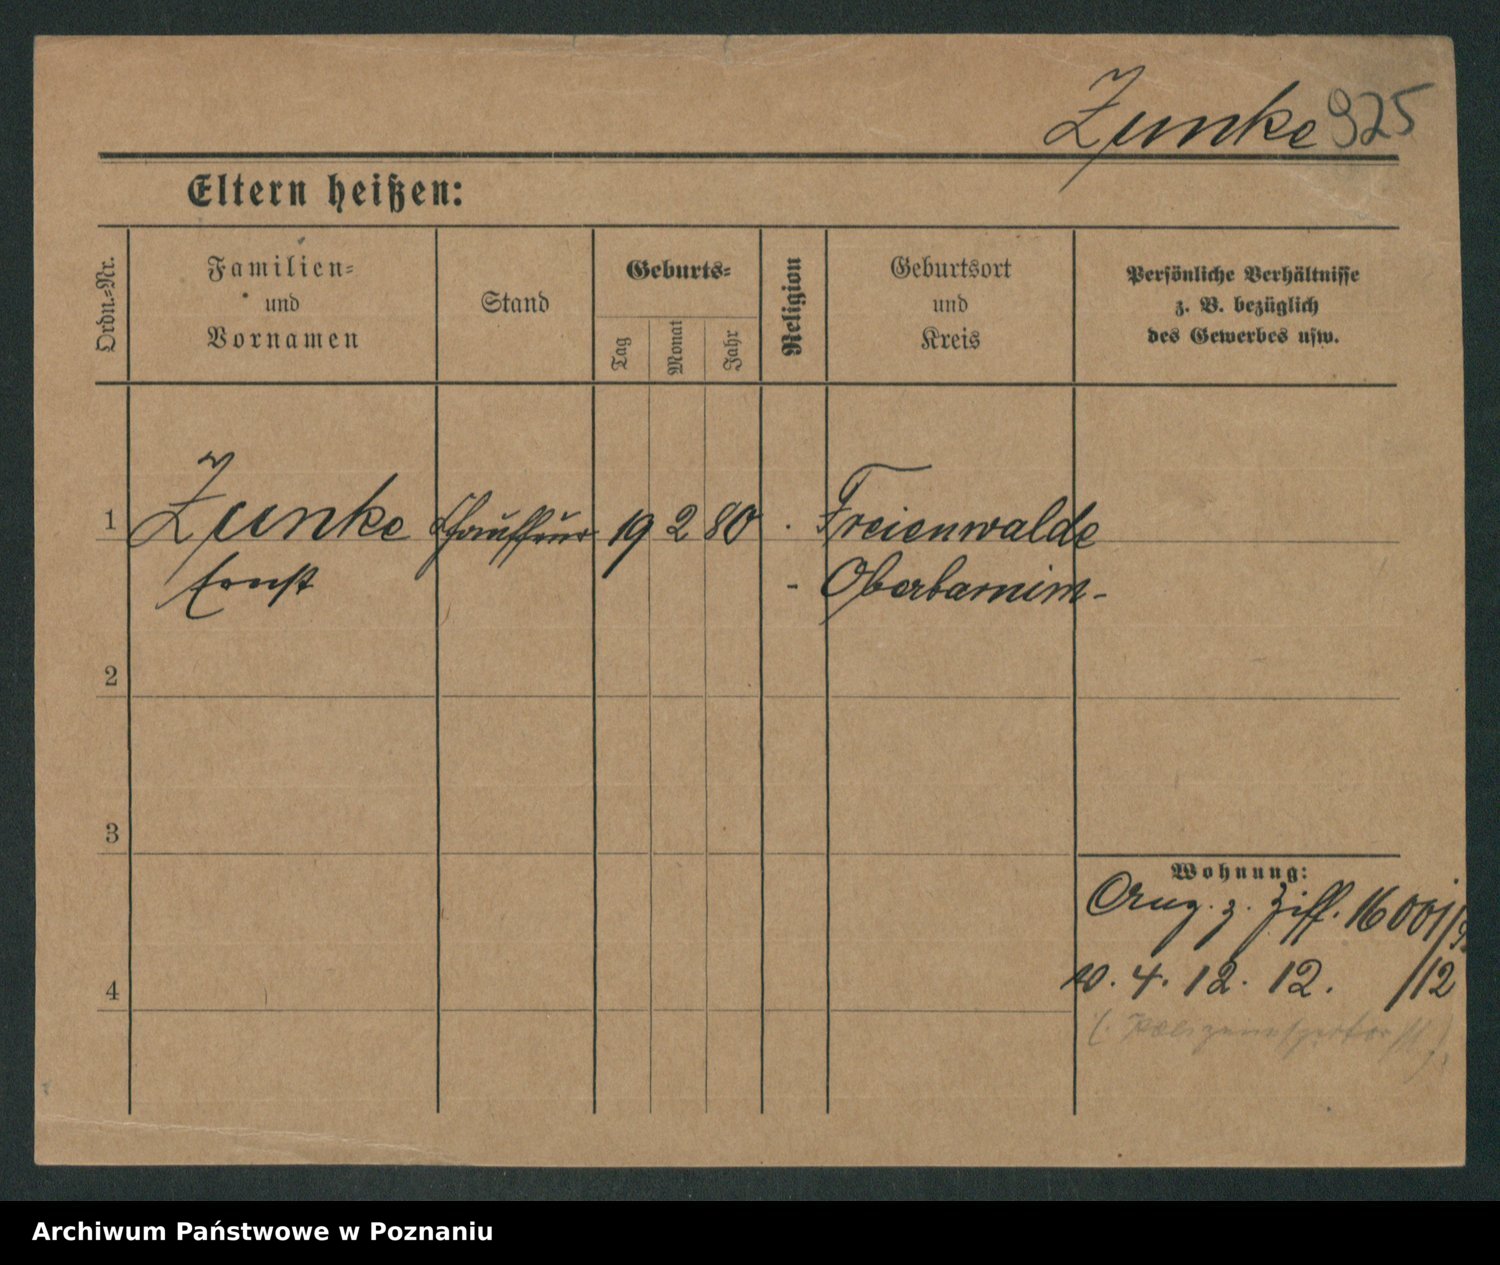 Zunke 925
Eltern heißen:
Ordn.-Nr.
Familien-
und
Vornamen
Stand
Geburts-
Tag
Monat
Jahr
Religion
Geburtsort
und
Kreis
Persönliche Verhältnisse
z. B. bezüglich
des Gewerbes usw.
1 Zunke Chauffeur 19 2 80 Freienwalde
Ernst - Oberbarnim-
2
3
Wohnung:
Ang. z. Ziff. 16001/
v. 4. 12. 12. /12
4
Archiwum Państwowe w Poznaniu